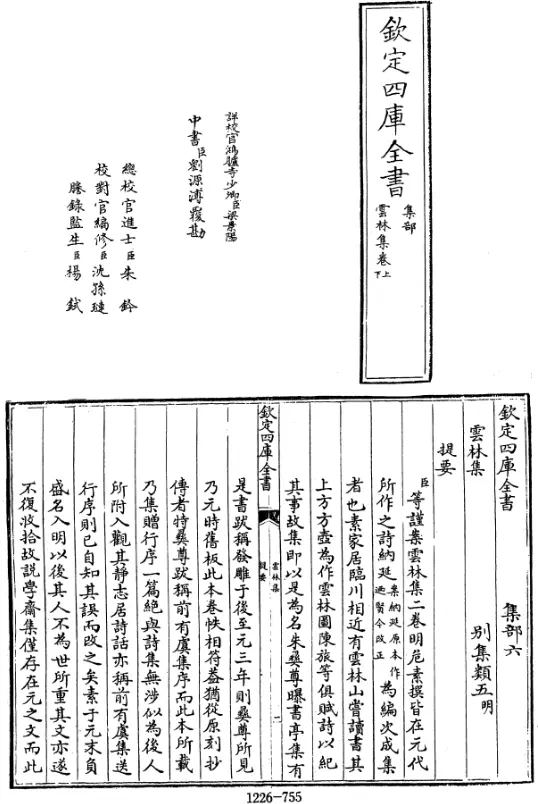 欽定四庫全書
集部
雲林集卷上下
詳校官鴻臚寺少卿臣梁景陽
中書臣劉源溥覆勘
總校官進士臣朱鈐
校對官編修臣沈孫璉
謄錄監生臣楊鉽
欽定四庫全書 集部六
雲林集 別集類五明
提要
臣等謹案雲林集二卷明危素撰皆在元代
所作之詩納延案納延原本作迺賢今改正為編次成集
者也素家居臨川相近有雲林山嘗讀書其
上方方壺為作雲林圖陳旅等俱賦詩以紀
其事故集即以是為名朱彝尊曝書亭集有
欽定四庫全書
雲林集
提要
一
是書跋稱發雕于後至元三年則彝尊所見
乃元時舊板此本卷帙相符葢猶從原刻抄
傳者特彝尊跋稱前有虞集序而此本所載
乃集贈行序一篇絶與詩集無涉似為後人
所附入觀其静志居詩話亦稱前有虞集送
行序則已自知其誤而改之矣素于元末負
盛名入明以後其人不為世所重其文亦遂
不復收拾故説學齋集僅存在元之文而此
1226-755